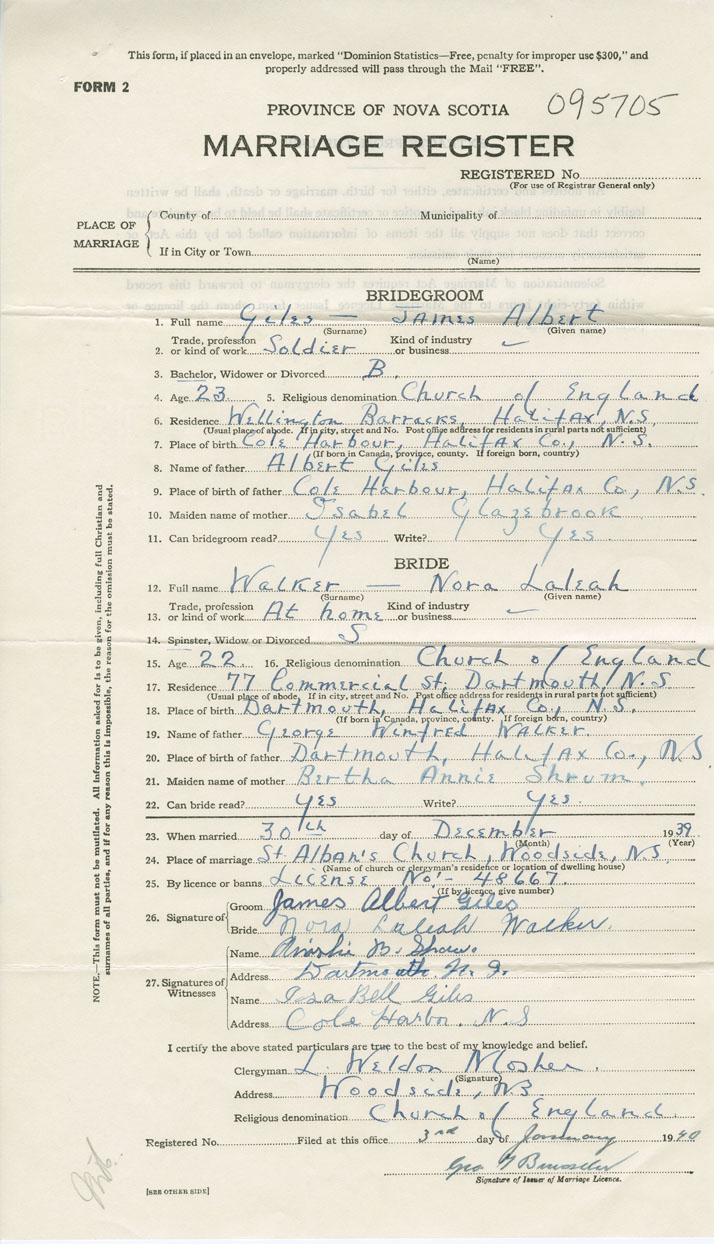 This form, if placed in an envelope, marked "Dominion Statistics—Free, penalty for improper use $300," and
properly addressed will pass through the Mail "FREE".
FORM 2
PROVINCE OF NOVA SCOTIA 095705
MARRIAGE REGISTER
REGISTERED No.
(For use of Registrar General only)
PLACE OF MARRIAGE
County of Municipality of
If in City or Town
(Name)
BRIDEGROOM
1. Full name Giles — James Albert
(Surname) (Given name)
2. Trade, profession or kind of work Soldier Kind of industry or business
3. Bachelor, Widower or Divorced B.
4. Age 23 5. Religious denomination Church of England
6. Residence Wellington Barracks, Halifax, N.S.
(Usual place of abode. If in city, street and No. Post office address for residents in rural parts not sufficient)
7. Place of birth Cole Harbour, Halifax Co., N.S.
(If born in Canada, province, county. If foreign born, country)
8. Name of father Albert Giles
9. Place of birth of father Cole Harbour, Halifax Co., N.S.
10. Maiden name of mother Isabel Glazebrook
11. Can bridegroom read? Yes Write? Yes.
BRIDE
12. Full name Walker — Nora Laleah
(Surname) (Given name)
13. Trade, profession or kind of work At home Kind of industry or business
14. Spinster, Widow or Divorced S
15. Age 22 16. Religious denomination Church of England
17. Residence 77 Commercial St. Dartmouth, N.S
(Usual place of abode. If in city, street and No. Post office address for residents in rural parts not sufficient)
18. Place of birth Dartmouth, Halifax Co., N.S.
(If born in Canada, province, county. If foreign born, country)
19. Name of father George Winfred Walker.
20. Place of birth of father Dartmouth, Halifax Co., N.S
21. Maiden name of mother Bertha Annie Shrum.
22. Can bride read? Yes Write? Yes.
23. When married 30th day of December 1939
(Month) (Year)
24. Place of marriage St Alban's Church, Woodside, N.S
(Name of church or clergyman's residence or location of dwelling house)
25. By licence or banns License No:- 48667.
(If by licence, give number)
26. Signature of
Groom James Albert Giles
Bride Nora Laleah Walker.
27. Signatures of Witnesses
Name B. Shaw.
Address Dartmouth N.S.
Name Isa Bell Giles
Address Cole Harbor. N.S
I certify the above stated particulars are true to the best of my knowledge and belief.
Clergyman L. Weldon Mosher.
(Signature)
Address Woodside, N.S
Religious denomination Church of England.
Registered No. Filed at this office 3rd day of January 1940
Geo
Signature of Issuer of Marriage Licence.
[SEE OTHER SIDE]
NOTE.—This form must not be mutilated. All information asked for is to be given, including full Christian and
surnames of all parties, and if for any reason this is impossible, the reason for the omission must be stated.